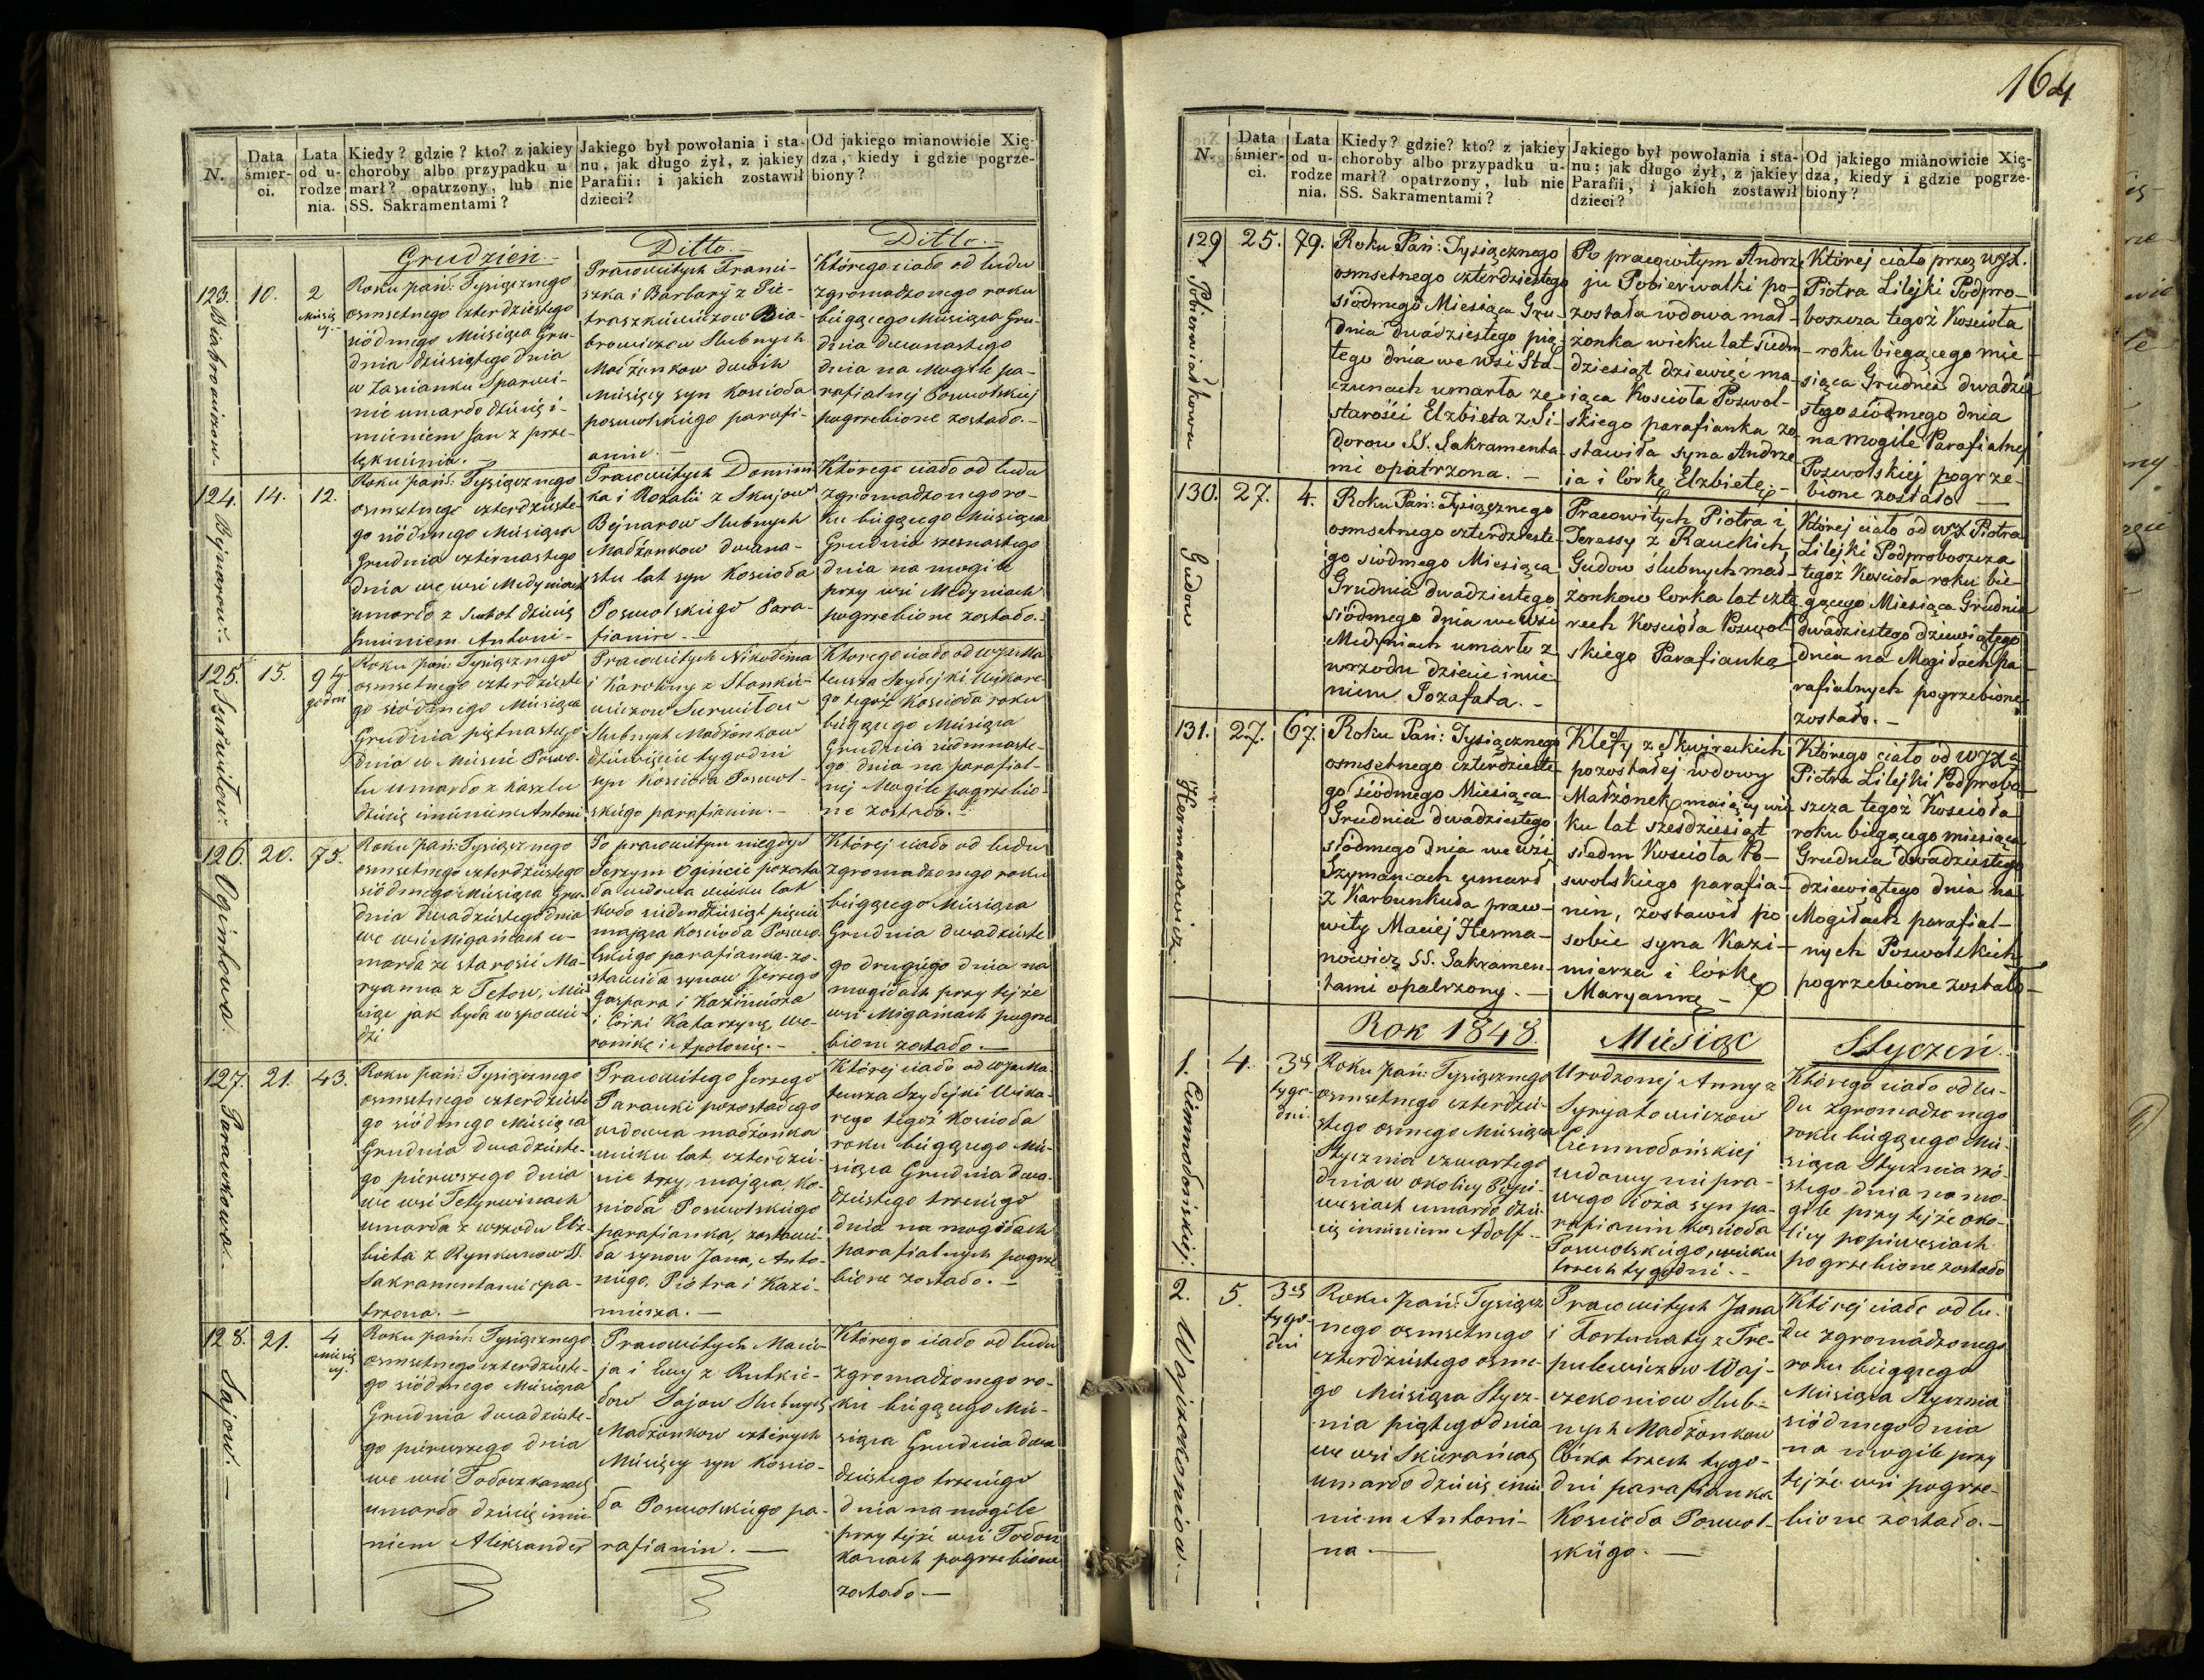 164
N.
Data śmier- ci.
Lata od u- rodze nia.
Kiedy? gdzie? kto? z jakiey
choroby albo przypadku u
marł? opatrzony, lub nie
SS. Sakramentami?
Jakiego był powołania i sta-
nu, jak długo żył, z jakiey
Parafii: i jakich zostawił
dzieci?
Od jakiego mianowicie Xię-
dza, kiedy i gdzie pogrze-
biony?
Grudzień
Ditto.
Ditto.
123.
10.
2 Miesię cy.
Roku pań: Tysiącznego
osmsetnego czterdziestego
siódmego Miesiąca Gru-
dnia dziesiątego dnia
w Zascianku Sparwi-
nie umarło dziecię i-
mieniem Jan z prze-
lęknienia. —
Pracowitych Franci-
szka i Barbary z Pie-
traszkiewiczow Dia-
browiczow Slubnych
Małżonkow dwóch
Miesięcy syn Koscioła
poswolskiego parafi-
anin. —
Którego ciało od ludu
zgromadzonego roku
biegącego Miesiąca Gru-
dnia dwunastego
dnia na Mogile pa-
rafialnej Poswolskiej
pogrzebione zostało. —
124.
Bejnarow.
14.
12.
Roku pań: Tysiącznego
osmsetnego czterdzieste-
go siódmego Miesiąca
Grudnia czternastego
dnia we wsi Medyniach
umarło z Suchot dziecię
Imieniem Antoni —
Pracowitych Domini
ka i Rozalii z Skujow
Bejnarow Slubnych
Małżonkow dwuna-
stu lat syn Koscioła
Poswolskiego Para-
fianin. —
Którego ciało od ludu
zgromadzonego ro-
ku biegącego Miesiąca
Grudnia szesnastego
dnia na mogile
przy wsi Medyniach
pogrzebione zostało. —
125.
Surwiłow.
15.
9 ty- godni
Roku pań: Tysiącznego
osmsetnego czterdzieste
go siódmego Miesiąca
Grudnia piętnastego
dnia w Mieście Poswo-
lu umarło z kaszlu
dziecię imieniem Antoni
Pracowitych Nikodima
i Karoliny z Stankie-
wiczow Surwiłow
Slubnych Małżonkow
dziewięciu tygodni
syn Koscioła Poswol-
skiego parafianin. —
Ktorego ciało od wyż Ma
teusza Szydejki Wikare-
go tegoż Koscioła roku
biegącego Miesiąca
Grudnia siedmnaste-
go dnia na parafial-
nej Mogile pogrzebio-
ne zostało. —
126.
Ogintowa.
20.
75.
Roku pań: Tysiącznego
osmsetnego czterdziestego
siódmego Miesiąca Gru-
dnia dwadziestego dnia
we wsi Migańcach u-
marła ze starości Ma-
ryanna z Tetow,
jak była w spowie-
dzi
Po pracowitym niegdyś
Jerzym Ogincie pozosta
ła wdowa wieku lat
koło siedmdziesiąt pięciu
mająca Koscioła Poswo-
lskiego parafianka. zo-
stawiła synow Jerzego
Gaspara i Kazimierza
i Córki Katarzynę, We-
ronikę i Apolonię. —
Której ciało od ludu
zgromadzonego roku
biegącego Miesiąca
Grudnia dwadzieste
go drugiego dnia na
mogiłach przy tejże
wsi Migańcach pogrze
bione zostało. —
127.
Parawkowa.
21.
43.
Roku pań: Tysiącznego
osmsetnego czterdzieste
go siódmego Miesiąca
Grudnia dwadzieste-
go pierwszego dnia
we wsi Tetyrwinach
umarła z wrzodu Elż-
bieta z Rynkunow SS.
Sakramentami opa-
trzona. —
Pracowitego Jerzego
Parauki pozostałego
wdowca małżonka
wieku lat, czterdzie-
sci trzy, mająca, Ko-
scioła Poswolskiego
parafianka, zostawi-
ła synow Jana, Anto-
niego, Piotra i Kazi-
mierza. —
Której ciało od wyż Ma-
teusza Szydejki Wika-
rego tegoż Koscioła
roku biegącego Mie-
siąca Grudnia dwa-
dziestego trzeciego
dnia na mogiłach
parafialnych pogrze
bione zostało. —
128.
Sajow. —
21.
4 miesię cy.
Roku pań: Tysiącznego
osmsetnego czterdzieste-
go siódmego Miesiąca
Grudnia dwadzieste-
go pierwszego dnia
we wsi Tołoczkanach
umarło dziecię imie
niem Aleksander
Pracowitych Macie-
ja i Ewy z Rutkie-
ow Sajow Slubnych
Małżonkow czterych
Miesięcy syn Koscio-
ła Poswolskiego pa-
rafianin. —
Którego ciało od ludu
zgromadzonego ro-
ku biegącego Mie-
siąca Grudnia dwa
dziestego trzeciego
dnia na mogile
przy tejże wsi Tołocz
kanach pogrzebione
zostało —
N.
Data śmier- ci.
Lata od u- rodze nia.
Kiedy? gdzie? kto? z jakiey
choroby albo przypadku u-
marł? opatrzony, lub nie
SS. Sakramentami?
Jakiego był powołania i sta-
nu; jak długo żył, z jakiey
Parafii, i jakich zostawił
dzieci?
Od jakiego mianowicie Xię-
dza, kiedy i gdzie pogrze-
biony?
129.
Pobierwiałkowa
25.
79.
Roku Pań: Tysiącznego
osmsetnego czterdziestego
siódmego Miesiąca Gru-
dnia dwadziestego pią-
tego dnia we wsi Sta-
czunach umarła ze
starości Elzbieta z Si-
dorow SS. Sakramenta-
mi opatrzona. —
Po pracowitym Andrze
ju Pobierwalki po-
została wdowa mał-
żonka wieku lat siedm
dziesiąt dziewięć ma-
iąca Koscioła Poswol-
skiego parafianka zo-
stawiła syna Andrze
ia i Corkę Elzbietę. —
Której ciało przez wyż.
Piotra Lilejki Podpro-
boszcza tegoż Koscioła
roku biegącego mie-
siąca Grudnia dwadzie
stego siódmego dnia
na mogile Parafialnej
Poswolskiej pogrze-
bione zostało —
130.
Gudow
27.
4.
Roku Pań: Tysiącznego
osmsetnego czterdzieste-
go siodmego Miesiąca
Grudnia dwadziestego
siódmego dnia we wsi
Medyniach umarło z
wrzodu dziecie imie-
niem Jozafata. —
Pracowitych Piotra i
Teressy z Rauckich
Gudow ślubnych mał-
żonkow Corka lat czte-
rech Koscioła Poswol-
skiego Parafianka
Której ciało od wyż Piotra
Lilejki Podproboszcza
tegoż Koscioła roku bie-
gącego Miesiąca Grudnia
dwadziestego dziewiątego
dnia na Mogiłach pa-
rafialnych pogrzebione
zostało. —
131.
Hermanowicz.
27.
67.
Roku Pań: Tysiącznego
osmsetnego czterdzieste
go siódmego Miesiąca
Grudnia dwadziestego
siódmego dnia we wsi
Szymańcach umarł
z Karbunkuła praco-
wity Maciej Herma-
nowicz SS. Sakramen-
tami opatrzony. —
Klefy z Skwireckich
pozostałej wdowy
Małżonek maiący wie
ku lat szesdziesiąt
siedm Koscioła Po-
swolskiego parafia-
nin, zostawił po
sobie syna Kazi-
mierza i Córkę
Maryannę —
Którego ciało od wyż
Piotra Lilejki Podprobo-
szcza tegoż Koscioła
roku biegącego miesiąca
Grudnia dwadziestego
dziewiątego dnia na
Mogiłach parafial-
nych Poswolskich
pogrzebione zostało —
Rok 1848.
Miesiąc
Styczeń.
1.
Ciemnołońskiej
4.
3ch tygo- dni
Roku pań: Tysiącznego
osmsetnego czterdzie-
stego osmego Miesiąca
Stycznia czwartego
dnia w okolicy Popi-
wesiach umarło dzie-
cię imieniem Adolf —
Urodzonej Anny z
Syryatowiczow
Ciemnołońskiej
wdowy niepra-
wego łoża syn pa-
rafianin Koscioła
Poswolskiego, wieku
trzech tygodni. —
Którego ciało od lu-
du zgromadzonego
roku biegącego Mie-
siąca Stycznia szó-
stego dnia na mo-
gile przy tejże oko-
licy popiwesiach
pogrzebione zostało
2.
Wajczekoniow. —
5.
3ch tygo- dni
Roku pań: Tysiącz
nego osmsetnego
czterdziestego osme-
go Miesiąca Stycz-
nia piątego dnia
we wsi Skierańcach
umarło dziecię imie
niem Antoni-
na. —
Pracowitych Jana
i Fortunaty z Tre-
pulewiczow Waj-
czekoniow Slub-
nych Małżonkow
Córka trzech tygo-
dni parafianka
Koscioła Poswol-
skiego. —
Której ciało od lu-
du zgromadzonego
roku biegącego
Miesiąca Stycznia
siódmego dnia
na mogile przy
tejże wsi pogrze-
bione zostało. —